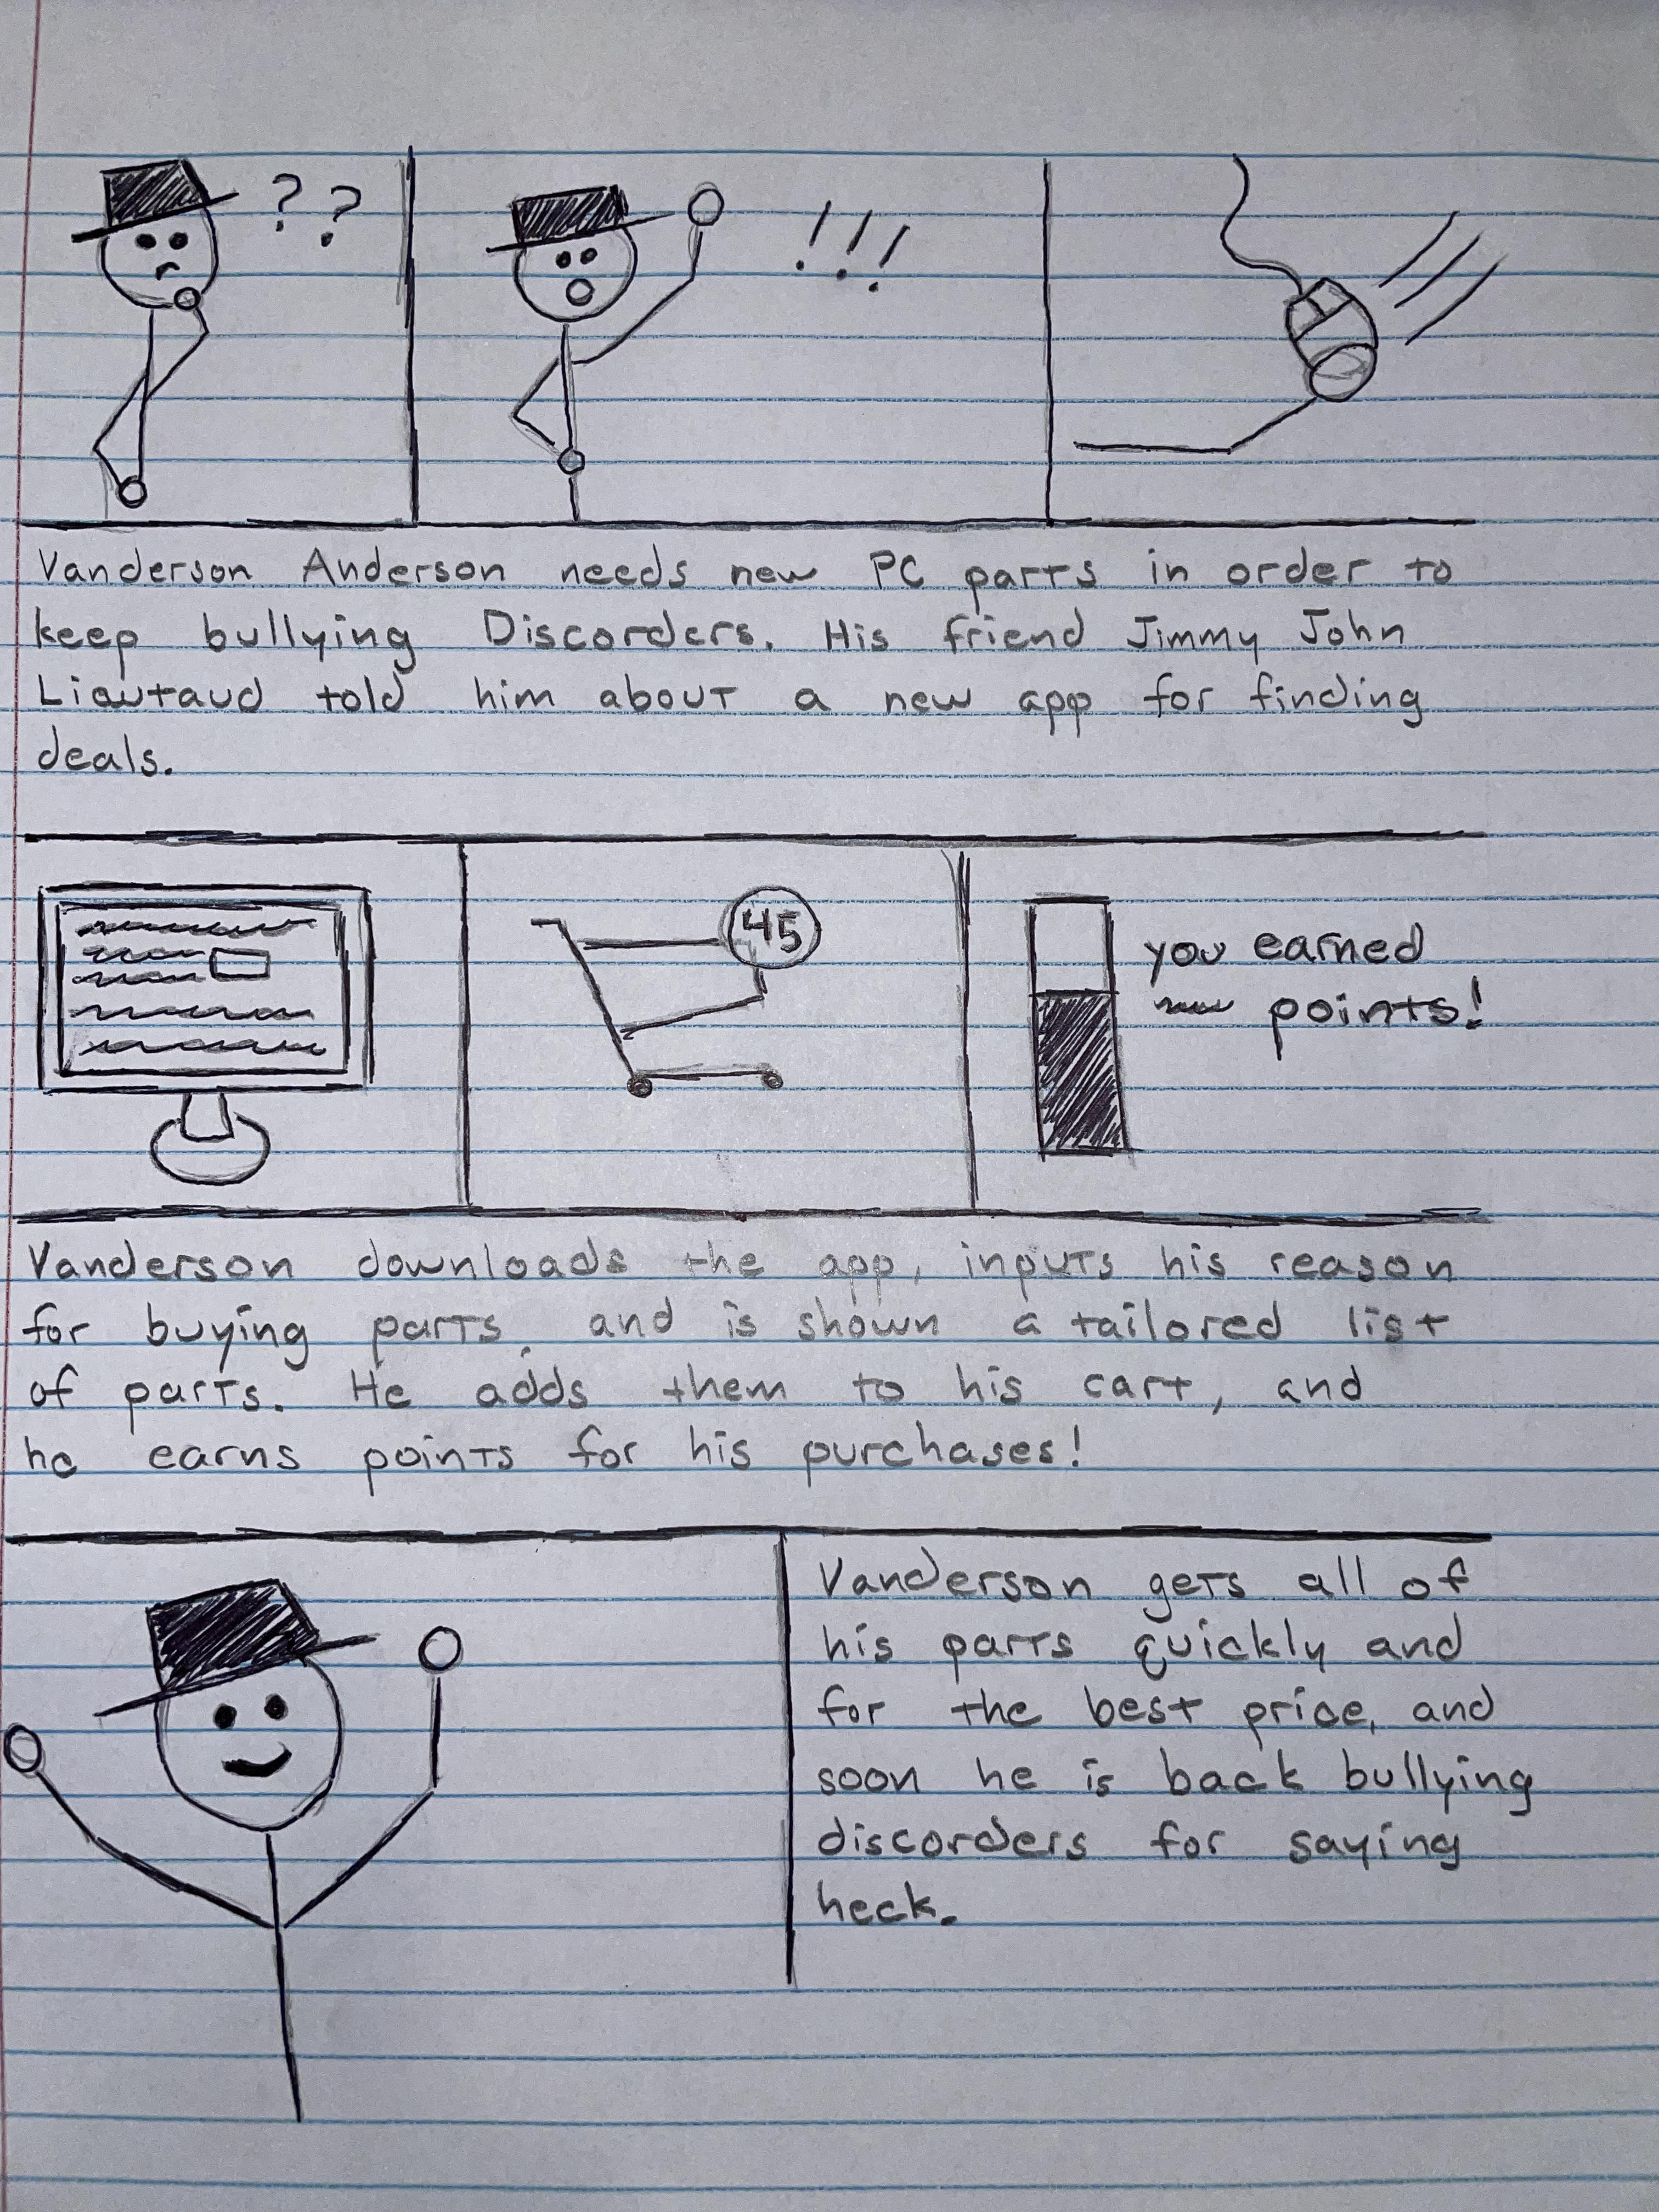 ? ?
! ! !
Vanderson Anderson needs new PC parts in order to
keep bullying Discorders. His friend Jimmy John
Liautaud told him about a new app for finding
deals.
45
you earned
points!
Vanderson downloads the app, inputs his reason
for buying parts, and is shown a tailored list
of parts. He adds them to his cart, and
he earns points for his purchases!
Vanderson gets all of
his parts quickly and
for the best price, and
soon he is back bullying
discorders for saying
heck.